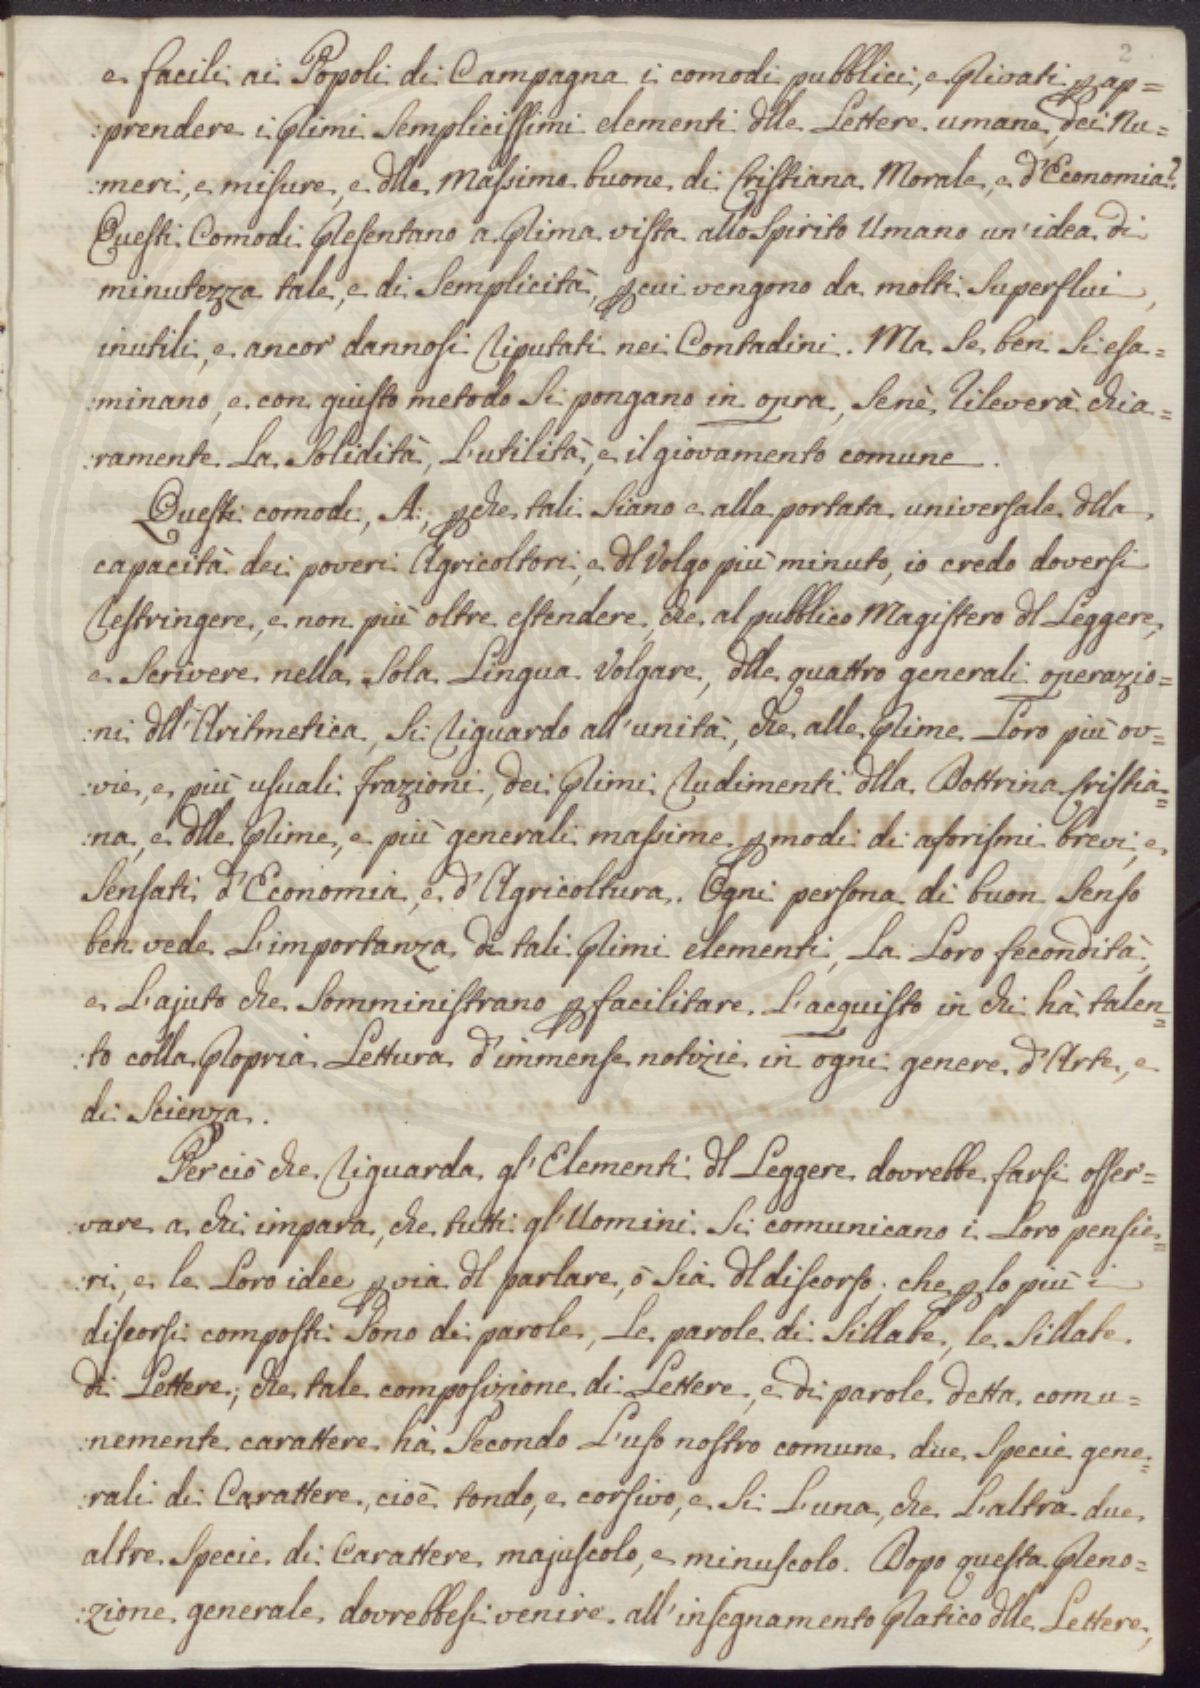 2
e facili ai Popoli di Campagna i comodi pubblici, e privati p ap=
:prendere i primi semplicissimi elementi dlle Lettere umane, dei Nu=
:meri, e misure, e dlle Massime buone di Cristiana Morale, e d'Economia?
Questi Comodi presentano a prima vista allo Spirito Umano un'idea di
minutezza tale, e di Semplicità, p cui vengono da molti Superflui,
inutili, e ancor dannosi riputati nei Contadini. Ma Se ben Si esa=
:minano, e con giusto metodo Si pongano in opra, Senè rileverà chia=
:ramente La Solidità, L'utilità, e il giovamento comune.
Questi comodi, A:, pche tali Siano e alla portata universale dlla
capacità dei poveri Agricoltori, e dl Volgo più minuto, io credo doversi
restringere, e non più oltre estendere, che al pubblico Magistero dl Leggere,
e Scrivere nella Sola Lingua Volgare, dlle quattro generali operazio=
:ni dll'Aritmetica, Si riguardo all'unità, che alle prime Loro più ov=
:vie, e più usuali frazioni, dei primi rudimenti dlla Dottrina Cristia=
:na, e dlle prime, e più generali massime p modi di aforismi brevi, e
Sensati d'Economia, e d'Agricoltura. Ogni persona di buon Senso
ben vede L'importanza di tali primi elementi, La Loro fecondità,
e L'ajuto che Somministrano p facilitare L'acquisto in chi hà talen=
:to colla propria Lettura d'immense notizie in ogni genere d'Arte, e
di Scienza.
Perciò che riguarda gl'Elementi dl Leggere dovrebbe farsi osser=
:vare a chi impara, che tutti gl'Uomini Si comunicano i Loro pensie=
:ri, e le Loro idee p via dl parlare, ò Sia dl discorso; che p lo più i
discorsi composti Sono di parole, Le parole di Sillabe, le Sillabe
di Lettere; che tale composizione di Lettere, e di parole detta comu=
:nemente carattere hà Secondo L'uso nostro comune due Specie gene=
:rali di Carattere, cioè tondo, e corsivo, e Si L'una, che L'altra due
altre Specie di Carattere majuscolo, e minuscolo. Dopo questa preno=
:zione generale dovrebbesi venire all'insegnamento pratico dlle Lettere,